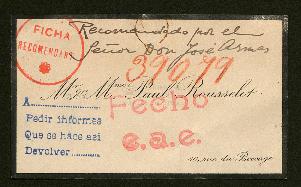 FICHA
RECOMENDARE
Recomendado por el
Señor Don José Armas
39079
Mr & Mme Paul Rousselot
Fecho
e.a.e.
A
Pedir informes
Que se hace así
Devolver
10, rue du Bocage